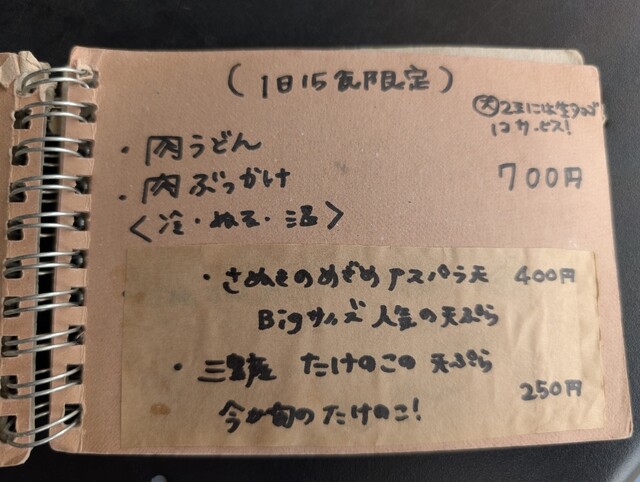 (1日15食限定)
大 2玉には生タマゴ
1コサービス!
・肉うどん
・肉ぶっかけ 700円
<冷・ぬる・温>
・さぬきのめざめ アスパラ天 400円
Bigサイズ 人気の天ぷら
・三豊産 たけのこの 天ぷら
250円
今が旬の たけのこ!